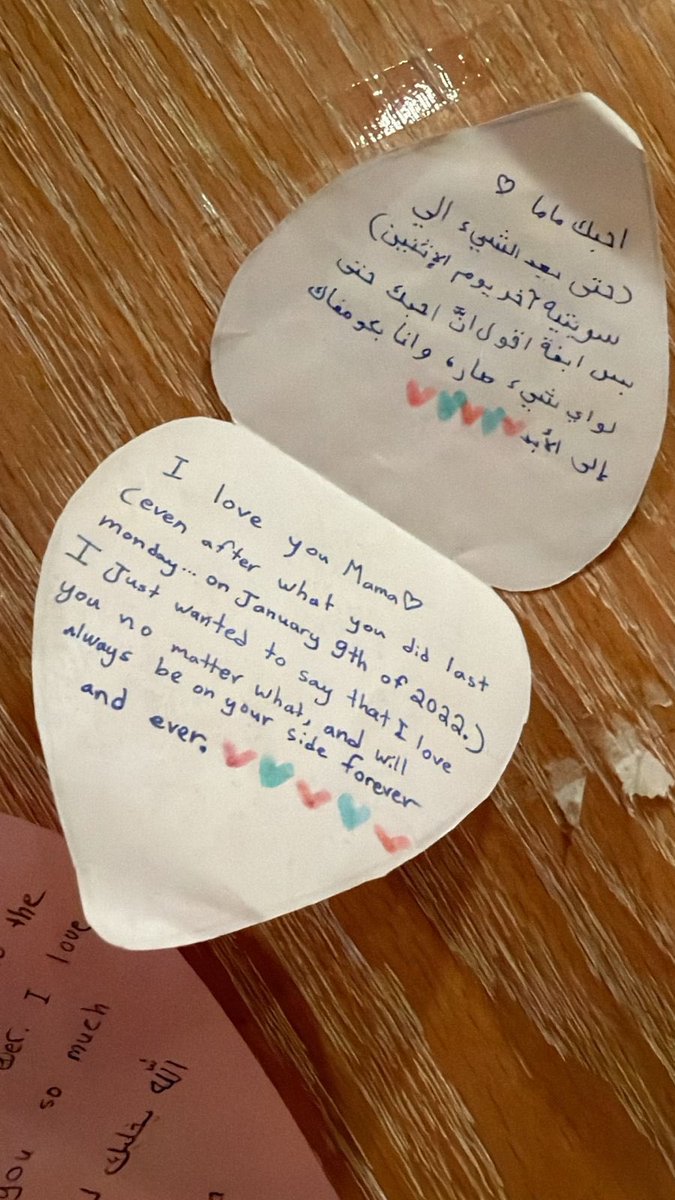 احبك ماما ♡
(حتى بعد الشيء الي
سويتيه آخر يوم الإثنين)
بس ابغة اقول انَّ احبك حتى
لواي شيء صار، وانا بكو معاك
إلى الأبد
I love you Mama♡
(even after what you did last
monday... on January 9th of 2022.)
I Just wanted to say that I love
you no matter what, and will
Always be on your side forever
and ever.
the
er. I love
so much
you
الله